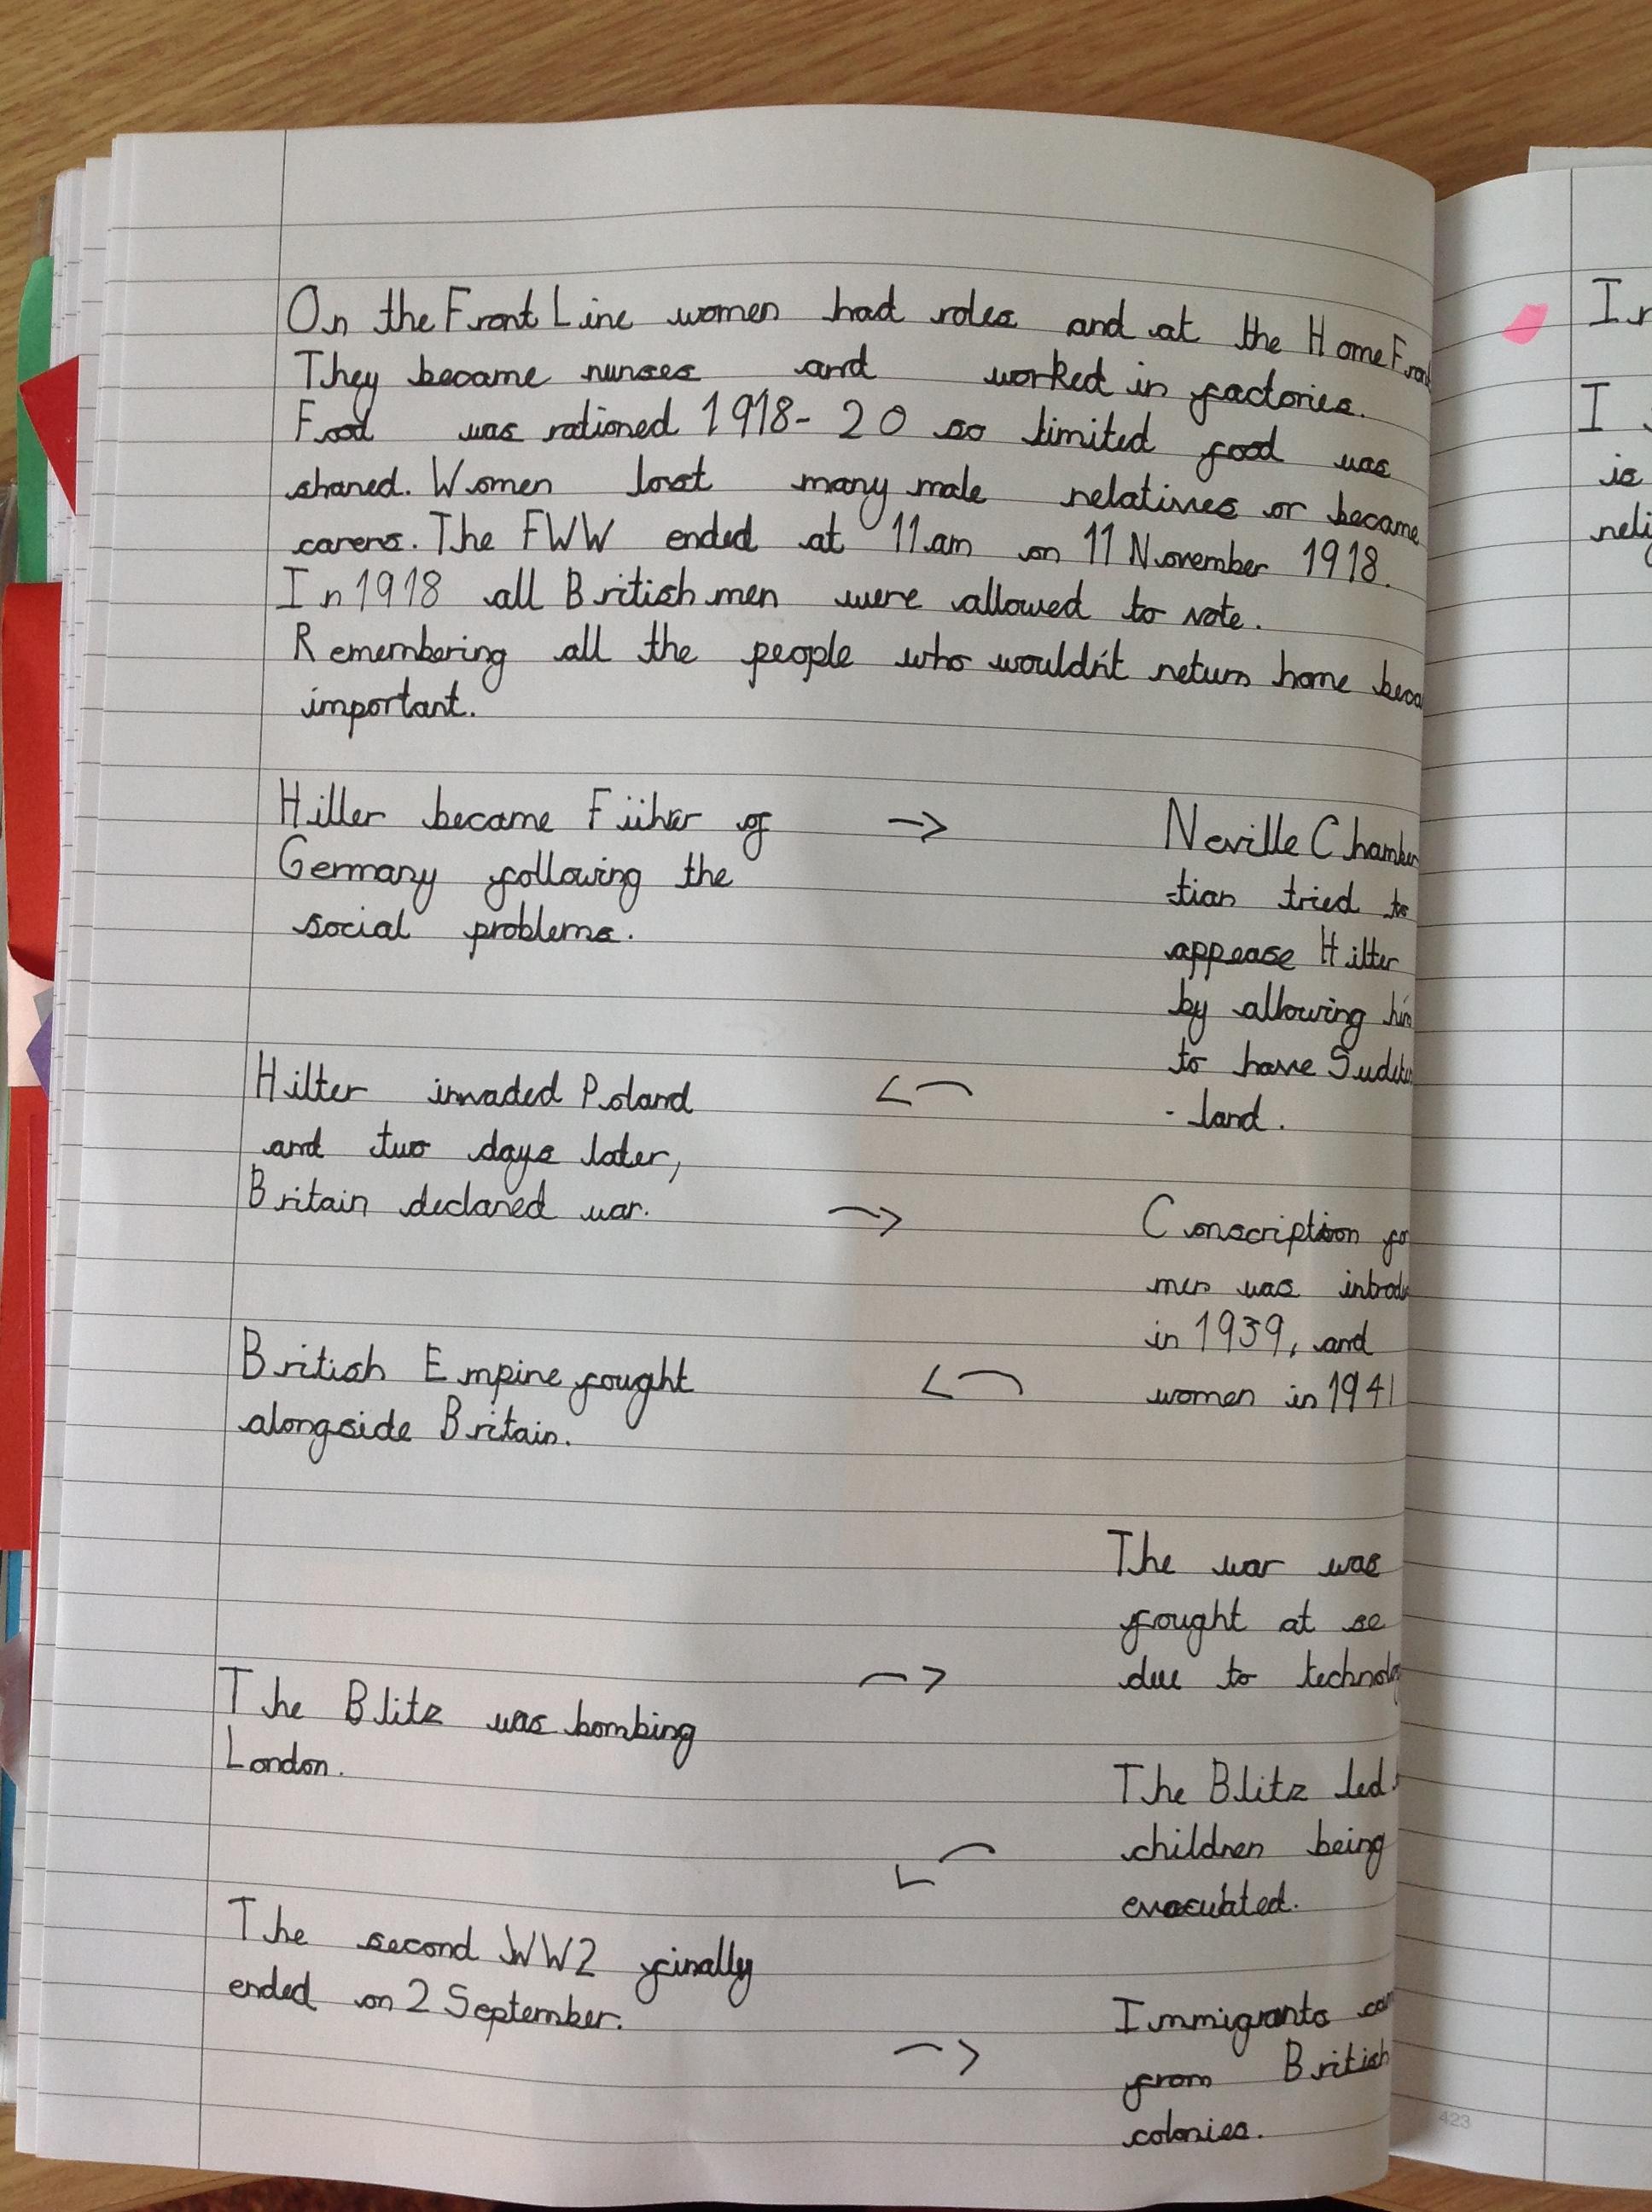 On the Front Line women had roles and at the Home Front
They became nurses and worked in factories.
Food was rationed 1918-20 so limited food was
shared. Women lost many male relatives or became
carers. The FWW ended at 11am on 11 November 1918.
In 1918 all British men were allowed to vote.
Remembering all the people who wouldn't return home beca
important.
Hitler became Füher of
Germany following the
social problems.
→
Neville Chamber
-tian tried to
appease Hilter
by allowing him
to have Sudete
- land.
Hilter invaded Poland
and two days later,
Britain declared war.
←
→
Conscription fo
men was introdu
in 1939, and
women in 1941
British Empire fought
alongside Britain.
←
The war was
fought at se
due to technolog
The Blitz was bombing
London.
→
The Blitz led
children being
evacuated.
←
The second WW2 finally
ended on 2 September.
→
Immigrants cam
from British
colonies.
423
In
I
is
reli